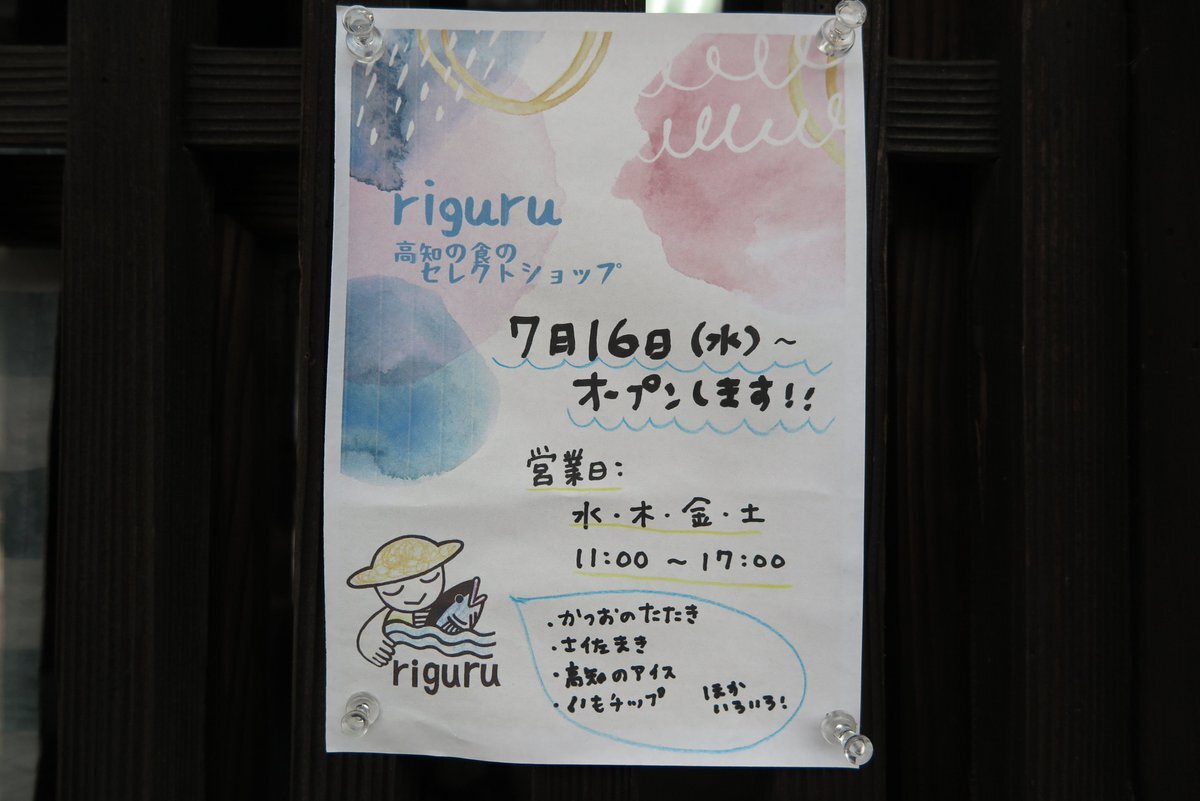 riguru
高知の食の
セレクトショップ
7月16日(水)~
オープンします!!
営業日:
水・木・金・土
11:00 ~ 17:00
・かつおのたたき
・土佐まき
・高知のアイス
・いもチップ
ほか
いろいろ!
riguru